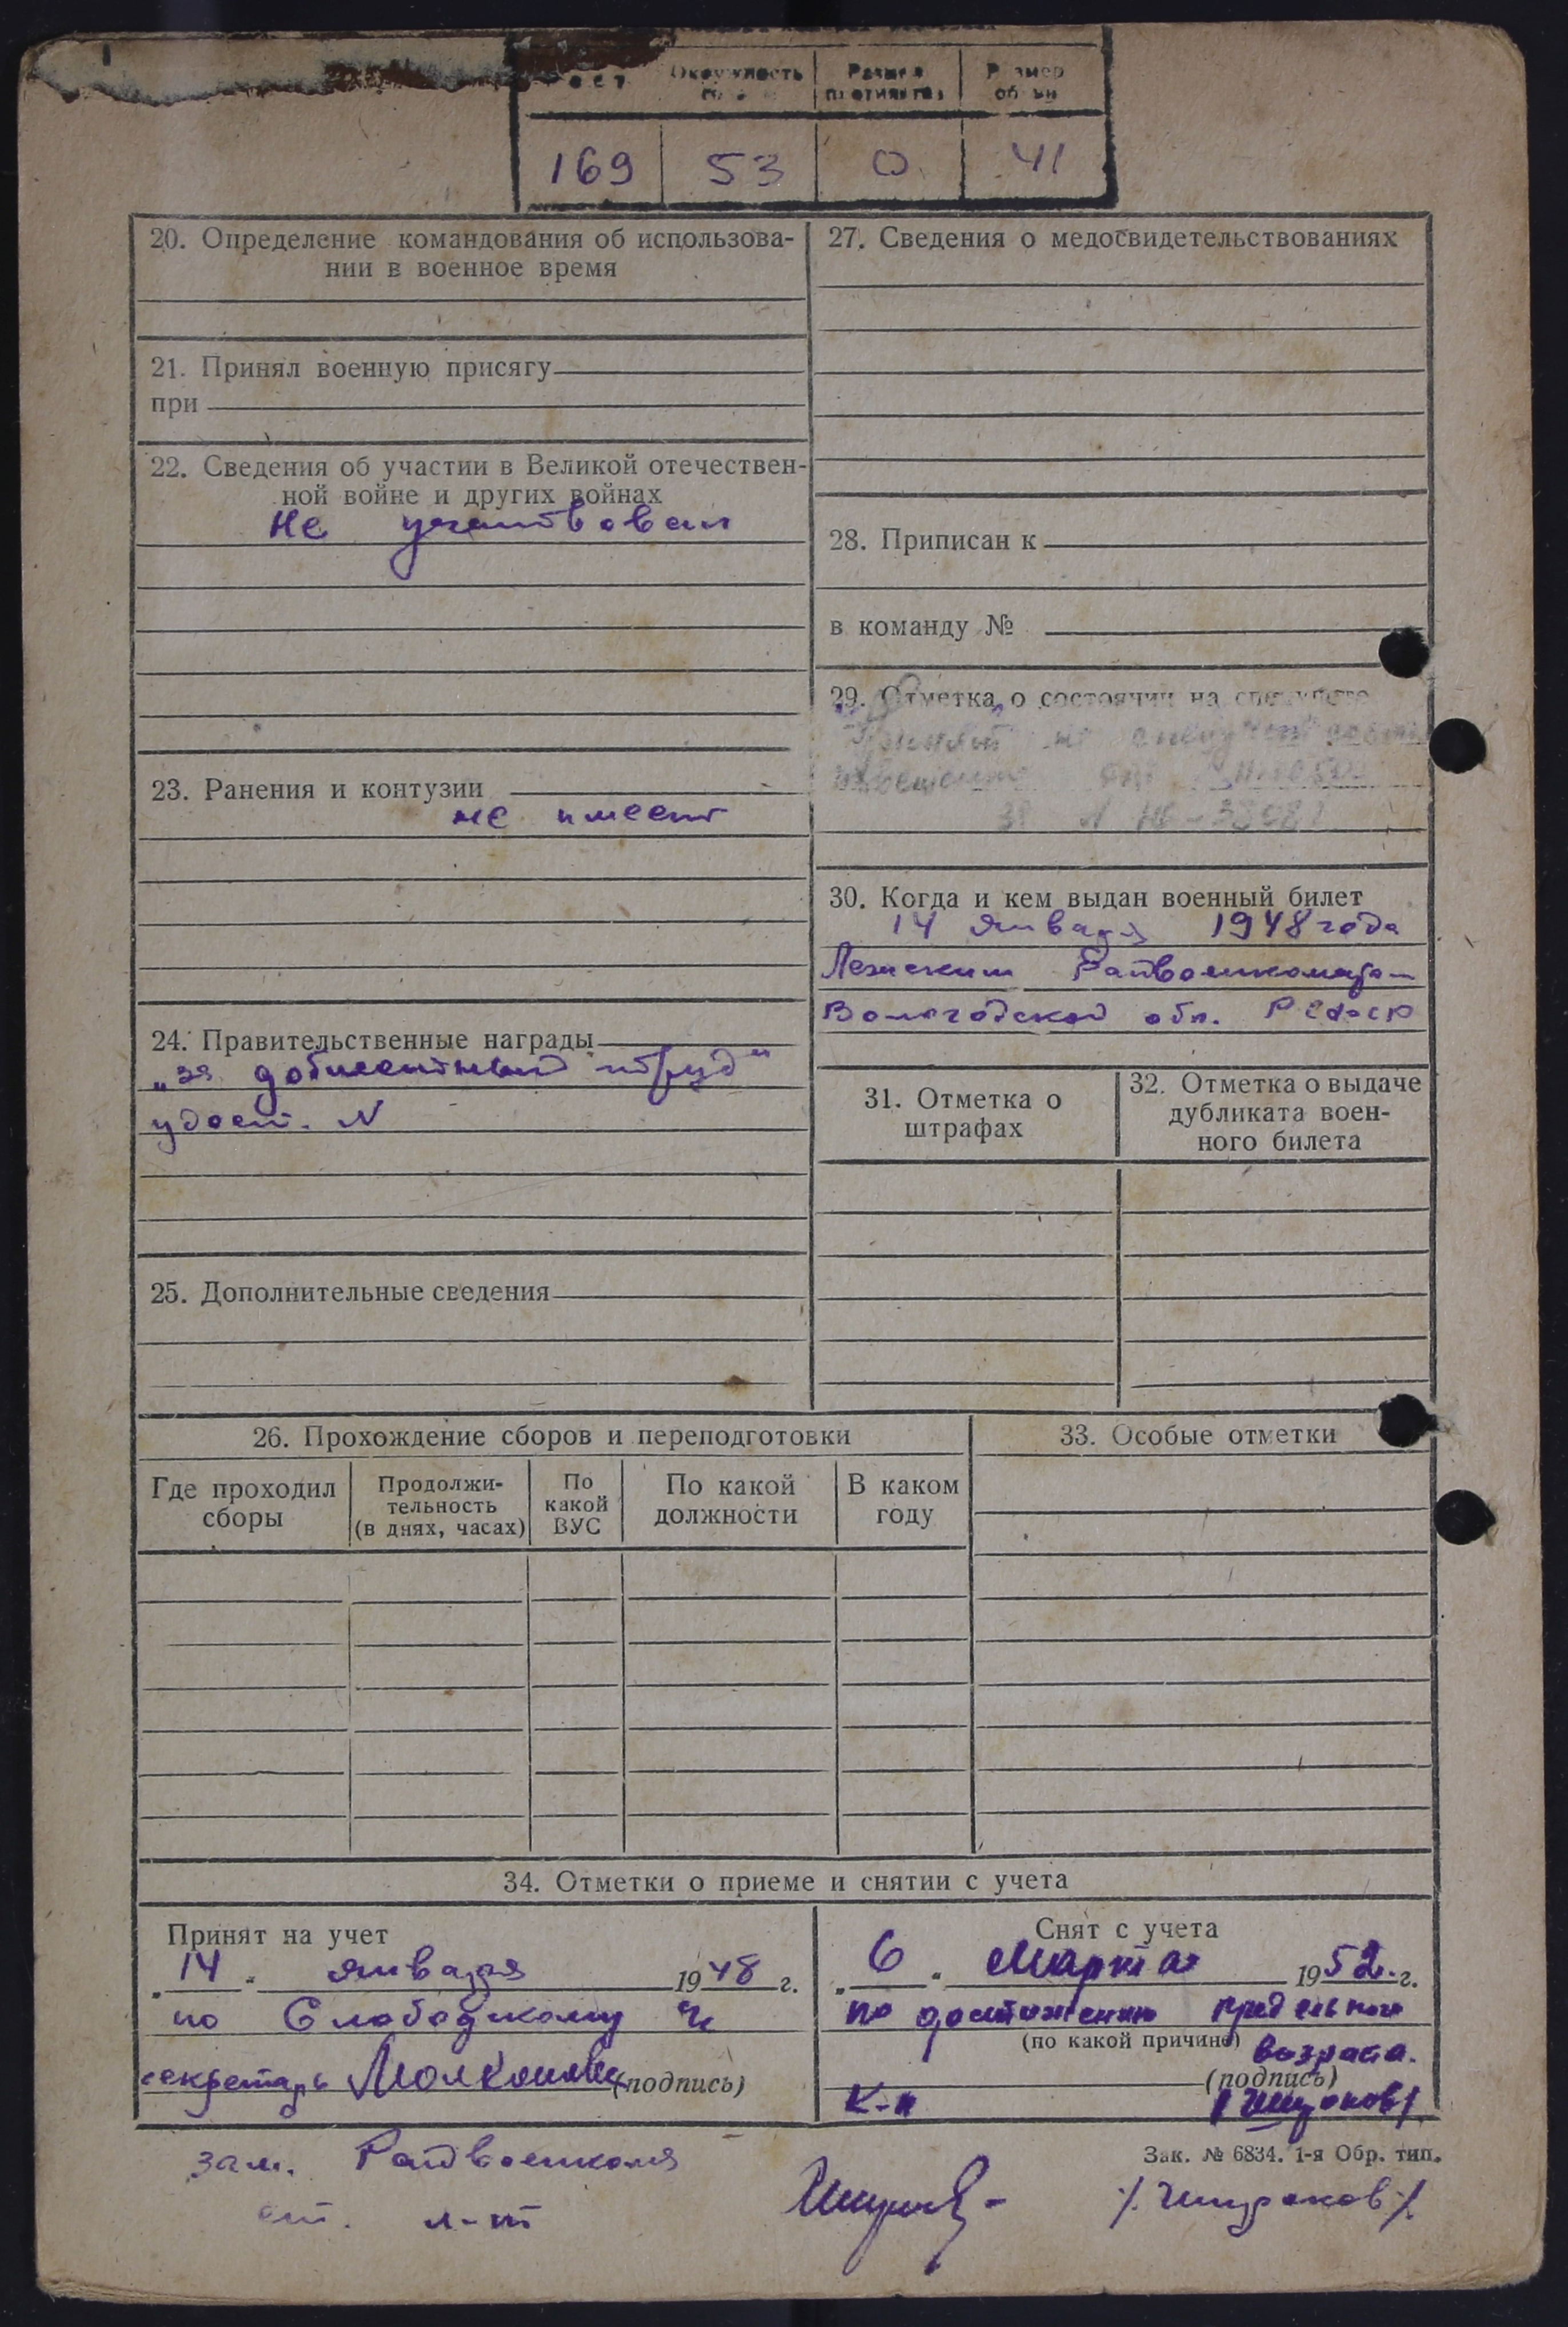 Рост Окружность головы Размер противогаза Размер обуви
169 53 0 41
20. Определение командования об использова-
нии в военное время
21. Принял военную присягу
при
22. Сведения об участии в Великой отечествен-
ной войне и других войнах
Не участвовал
23. Ранения и контузии
не имеет
24. Правительственные награды
„за доблестный труд"
удост. N
25. Дополнительные сведения
27. Сведения о медосвидетельствованиях
28. Приписан к
в команду №
29. Отметка о состоянии на спецучете
30. Когда и кем выдан военный билет
14 января 1948 года
Лежским Райвоенкоматом
Вологодской обл. РСФСР
31. Отметка о
штрафах
32. Отметка о выдаче
дубликата воен-
ного билета
26. Прохождение сборов и переподготовки
Где проходил
сборы
Продолжи-
тельность
(в днях, часах)
По
какой
ВУС
По какой
должности
В каком
году
33. Особые отметки
34. Отметки о приеме и снятии с учета
Принят на учет
„14" января 1948 г.
по Слободскому
секретарь (подпись)
Снят с учета
„6" Марта 1952 г.
по достижению предельного
(по какой причине) возраста.
(подпись)
К-н
зам. Райвоенкома
ст. л-т
Зак. № 6834. 1-я Обр. тип.